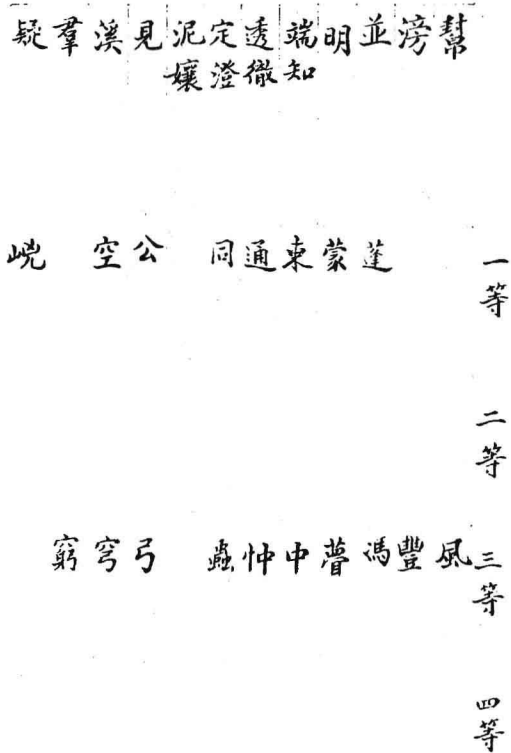 幫滂並明端透定泥見溪羣疑
知徹澄孃
一等
蓬蒙東通同公空㟅
二等
三等
風豐馮瞢中忡蟲弓穹窮
四等